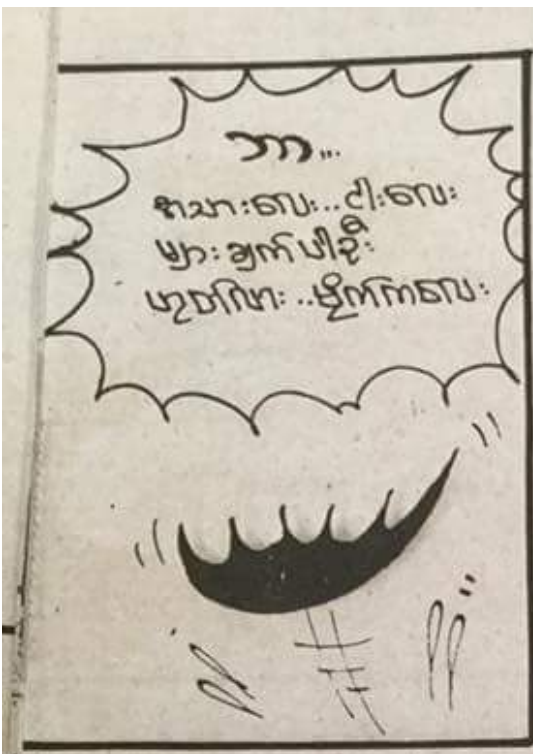 ဘာ...
စာသားလေး..ငါးလေး
များချက်ပါဦး
ဟုတ်လား..မိုက်ကလေး